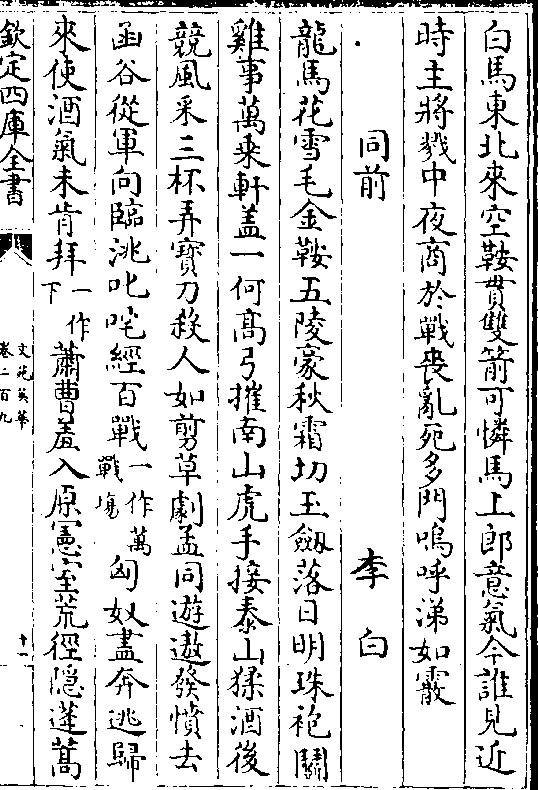 白馬東北來空鞍貫雙箭可憐馬上郎意氣今誰見近
時主將戮中夜商於戰喪亂死多門嗚呼涕如霰
同前 李白
龍馬花雪毛金鞍五陵豪秋霜切玉劔落日明珠袍鬭
雞事萬乗軒蓋一何髙弓摧南山虎手接泰山猱酒後
競風采三杯弄寶刀殺人如剪草劇孟同遊遨發憤去
函谷從軍向臨洮叱咤經百戰一作萬戰塲匈奴盡奔逃歸
來使酒氣未肯拜一作下蕭曹羞入原憲室荒徑隱蓬蒿
欽定四庫全書 文苑英華 卷二百九 十一